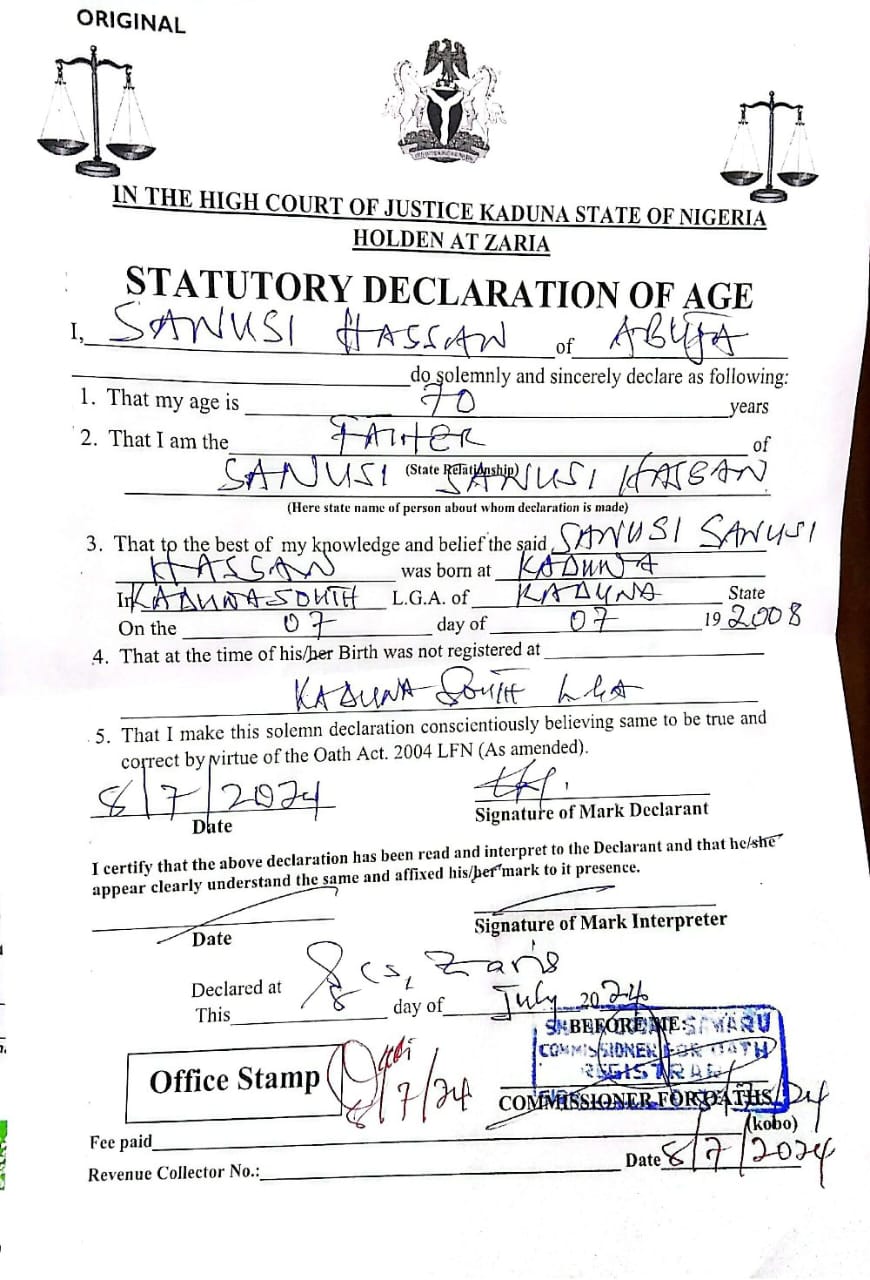 ORIGINAL
IN THE HIGH COURT OF JUSTICE KADUNA STATE OF NIGERIA
HOLDEN AT ZARIA
STATUTORY DECLARATION OF AGE
I, SANUSI HASSAN of ABUJA
do solemnly and sincerely declare as following:
1. That my age is 70 years
2. That I am the FATHER of
(State Relationship)
SANUSI SANUSI HASSAN
(Here state name of person about whom declaration is made)
3. That to the best of my knowledge and belief the said SANUSI SANUSI
HASSAN was born at KADUNA
In KADUNA SOUTH L.G.A. of KADUNA State
On the 07 day of 07 19 2008
4. That at the time of his/her Birth was not registered at
KADUNA SOUTH LGA
5. That I make this solemn declaration conscientiously believing same to be true and
correct by virtue of the Oath Act. 2004 LFN (As amended).
8/7/2024
Date Signature of Mark Declarant
I certify that the above declaration has been read and interpret to the Declarant and that he/she
appear clearly understand the same and affixed his/her mark to it presence.
Date Signature of Mark Interpreter
Declared at Zaria
This 8 day of July 2024
BEFORE ME: SAMARU
COMMISSIONER FOR OATH
REGISTRAR
Office Stamp 8/7/24
COMMISSIONER FOR OATHS
(kobo)
Fee paid
Revenue Collector No.: Date 8/7/2024